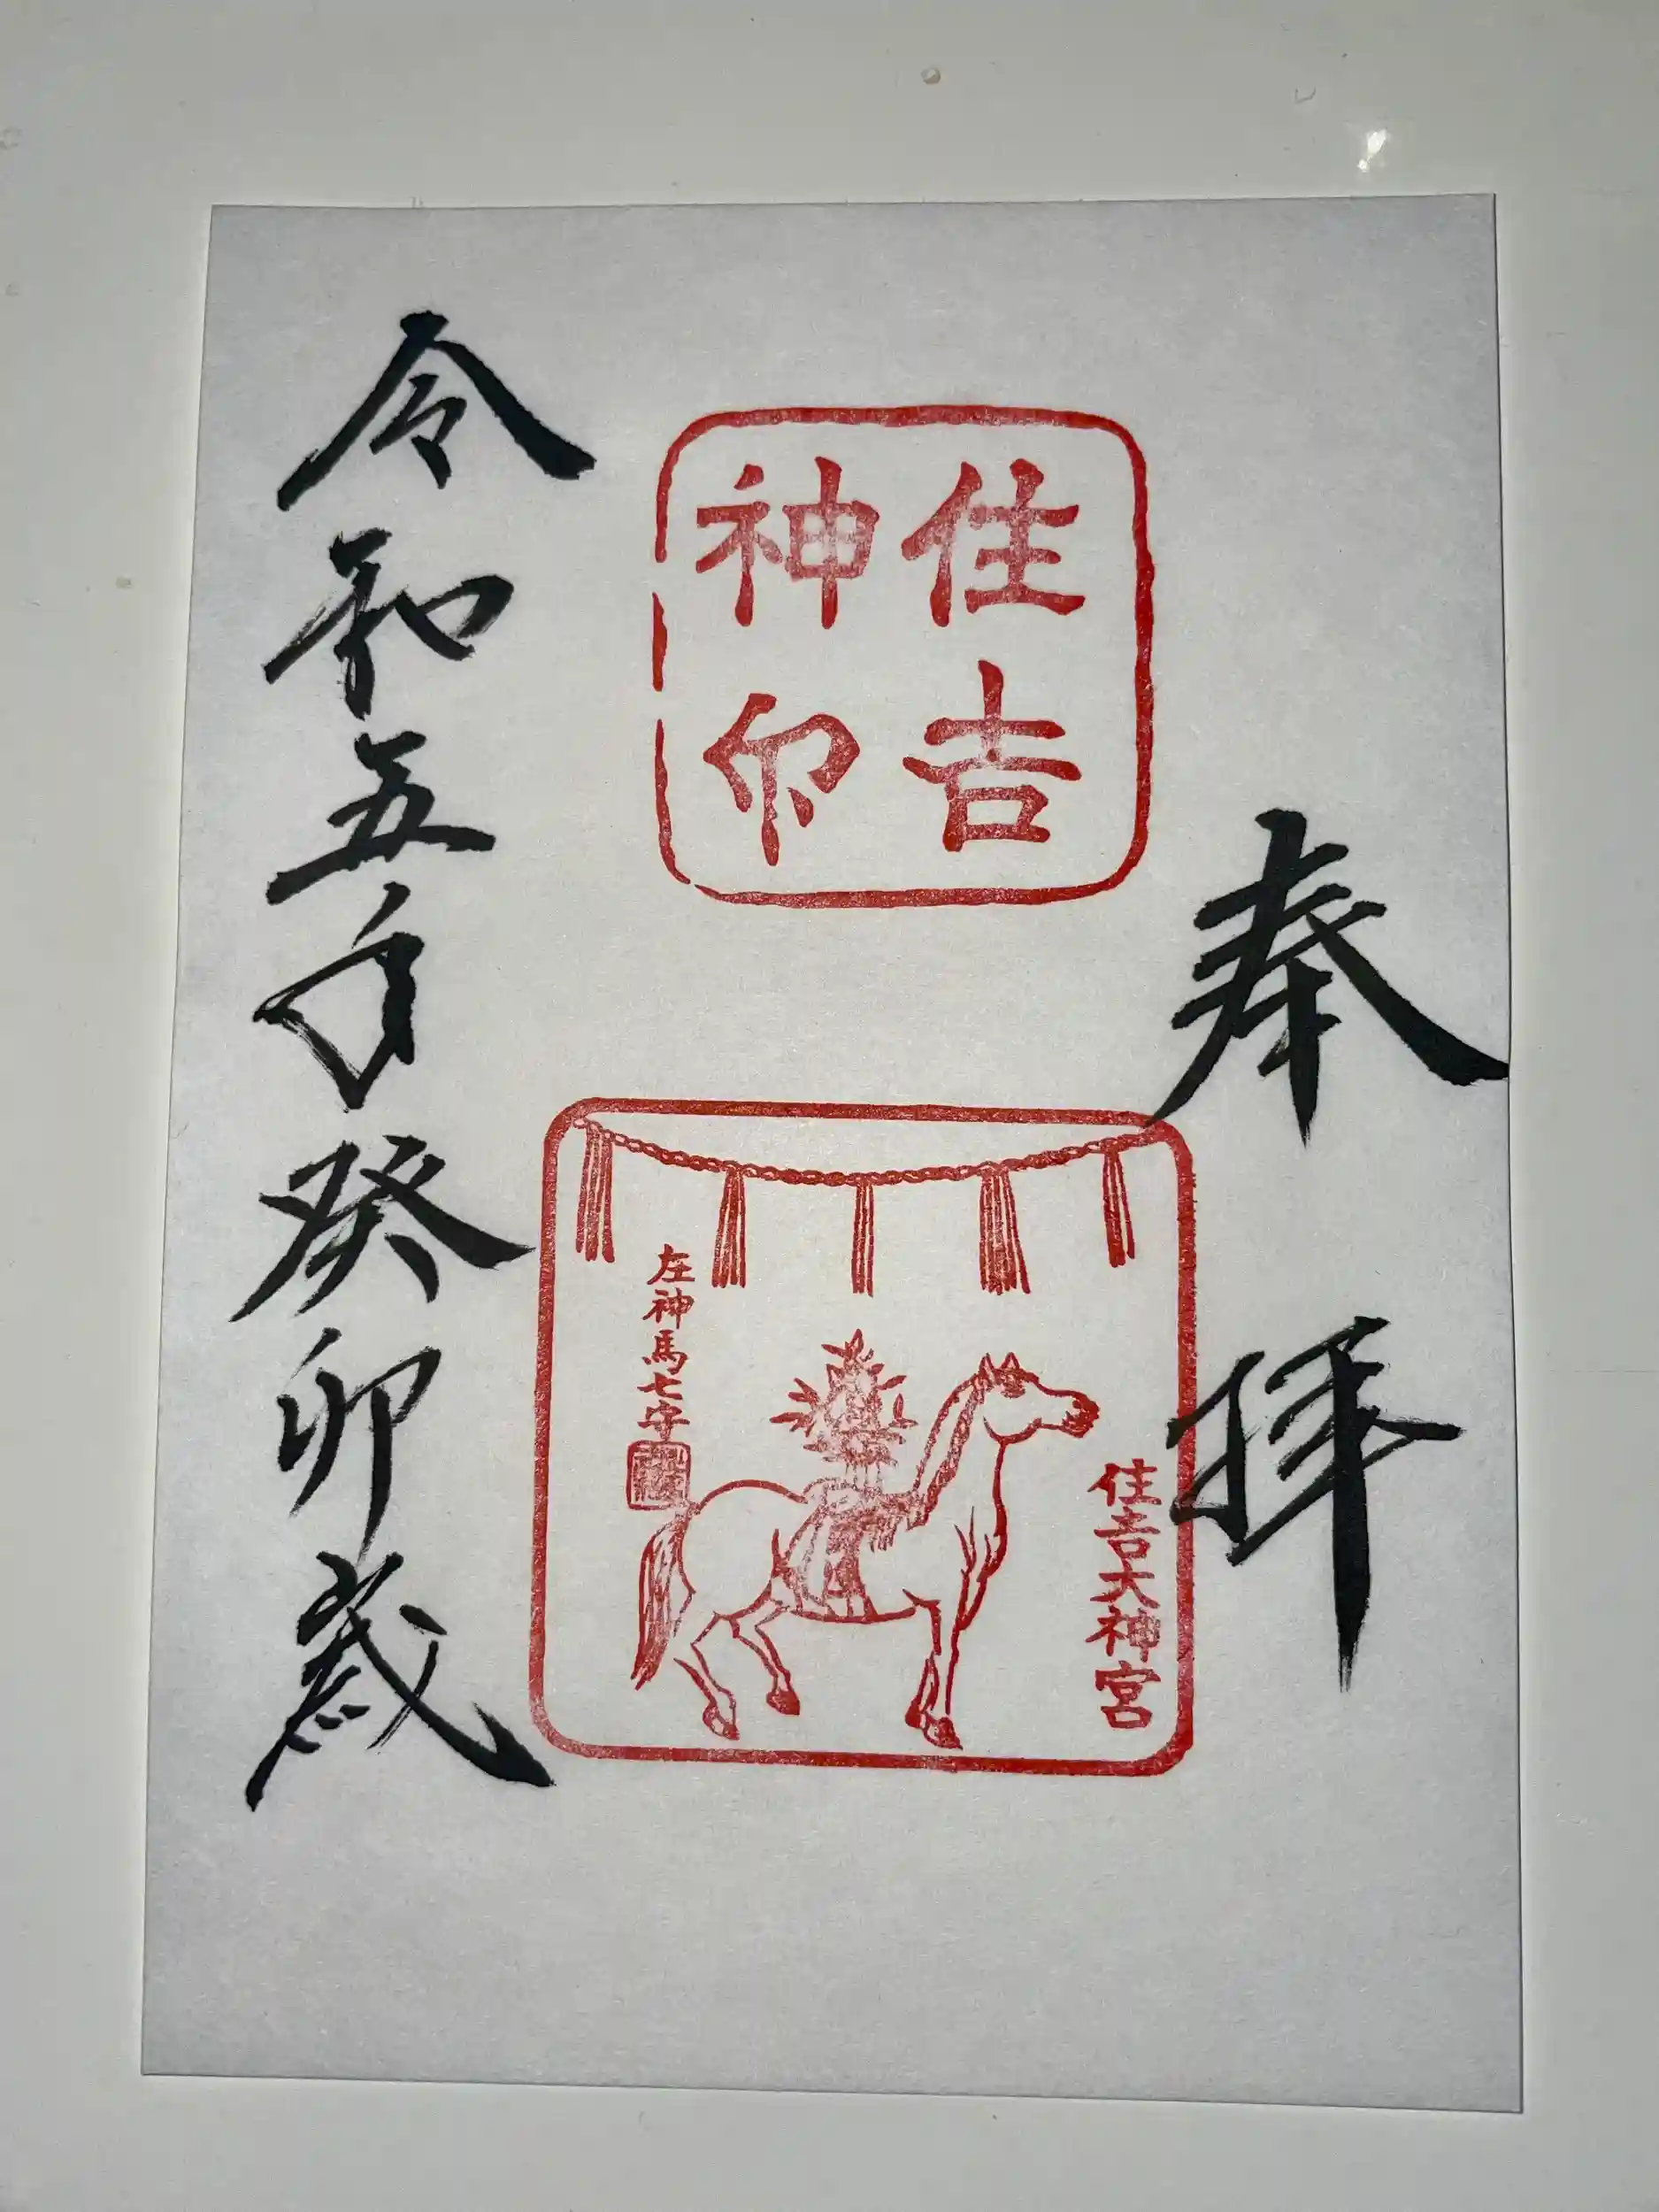 奉拝
住吉
神印
住吉大神宮
左神馬七字
令和五年癸卯歳